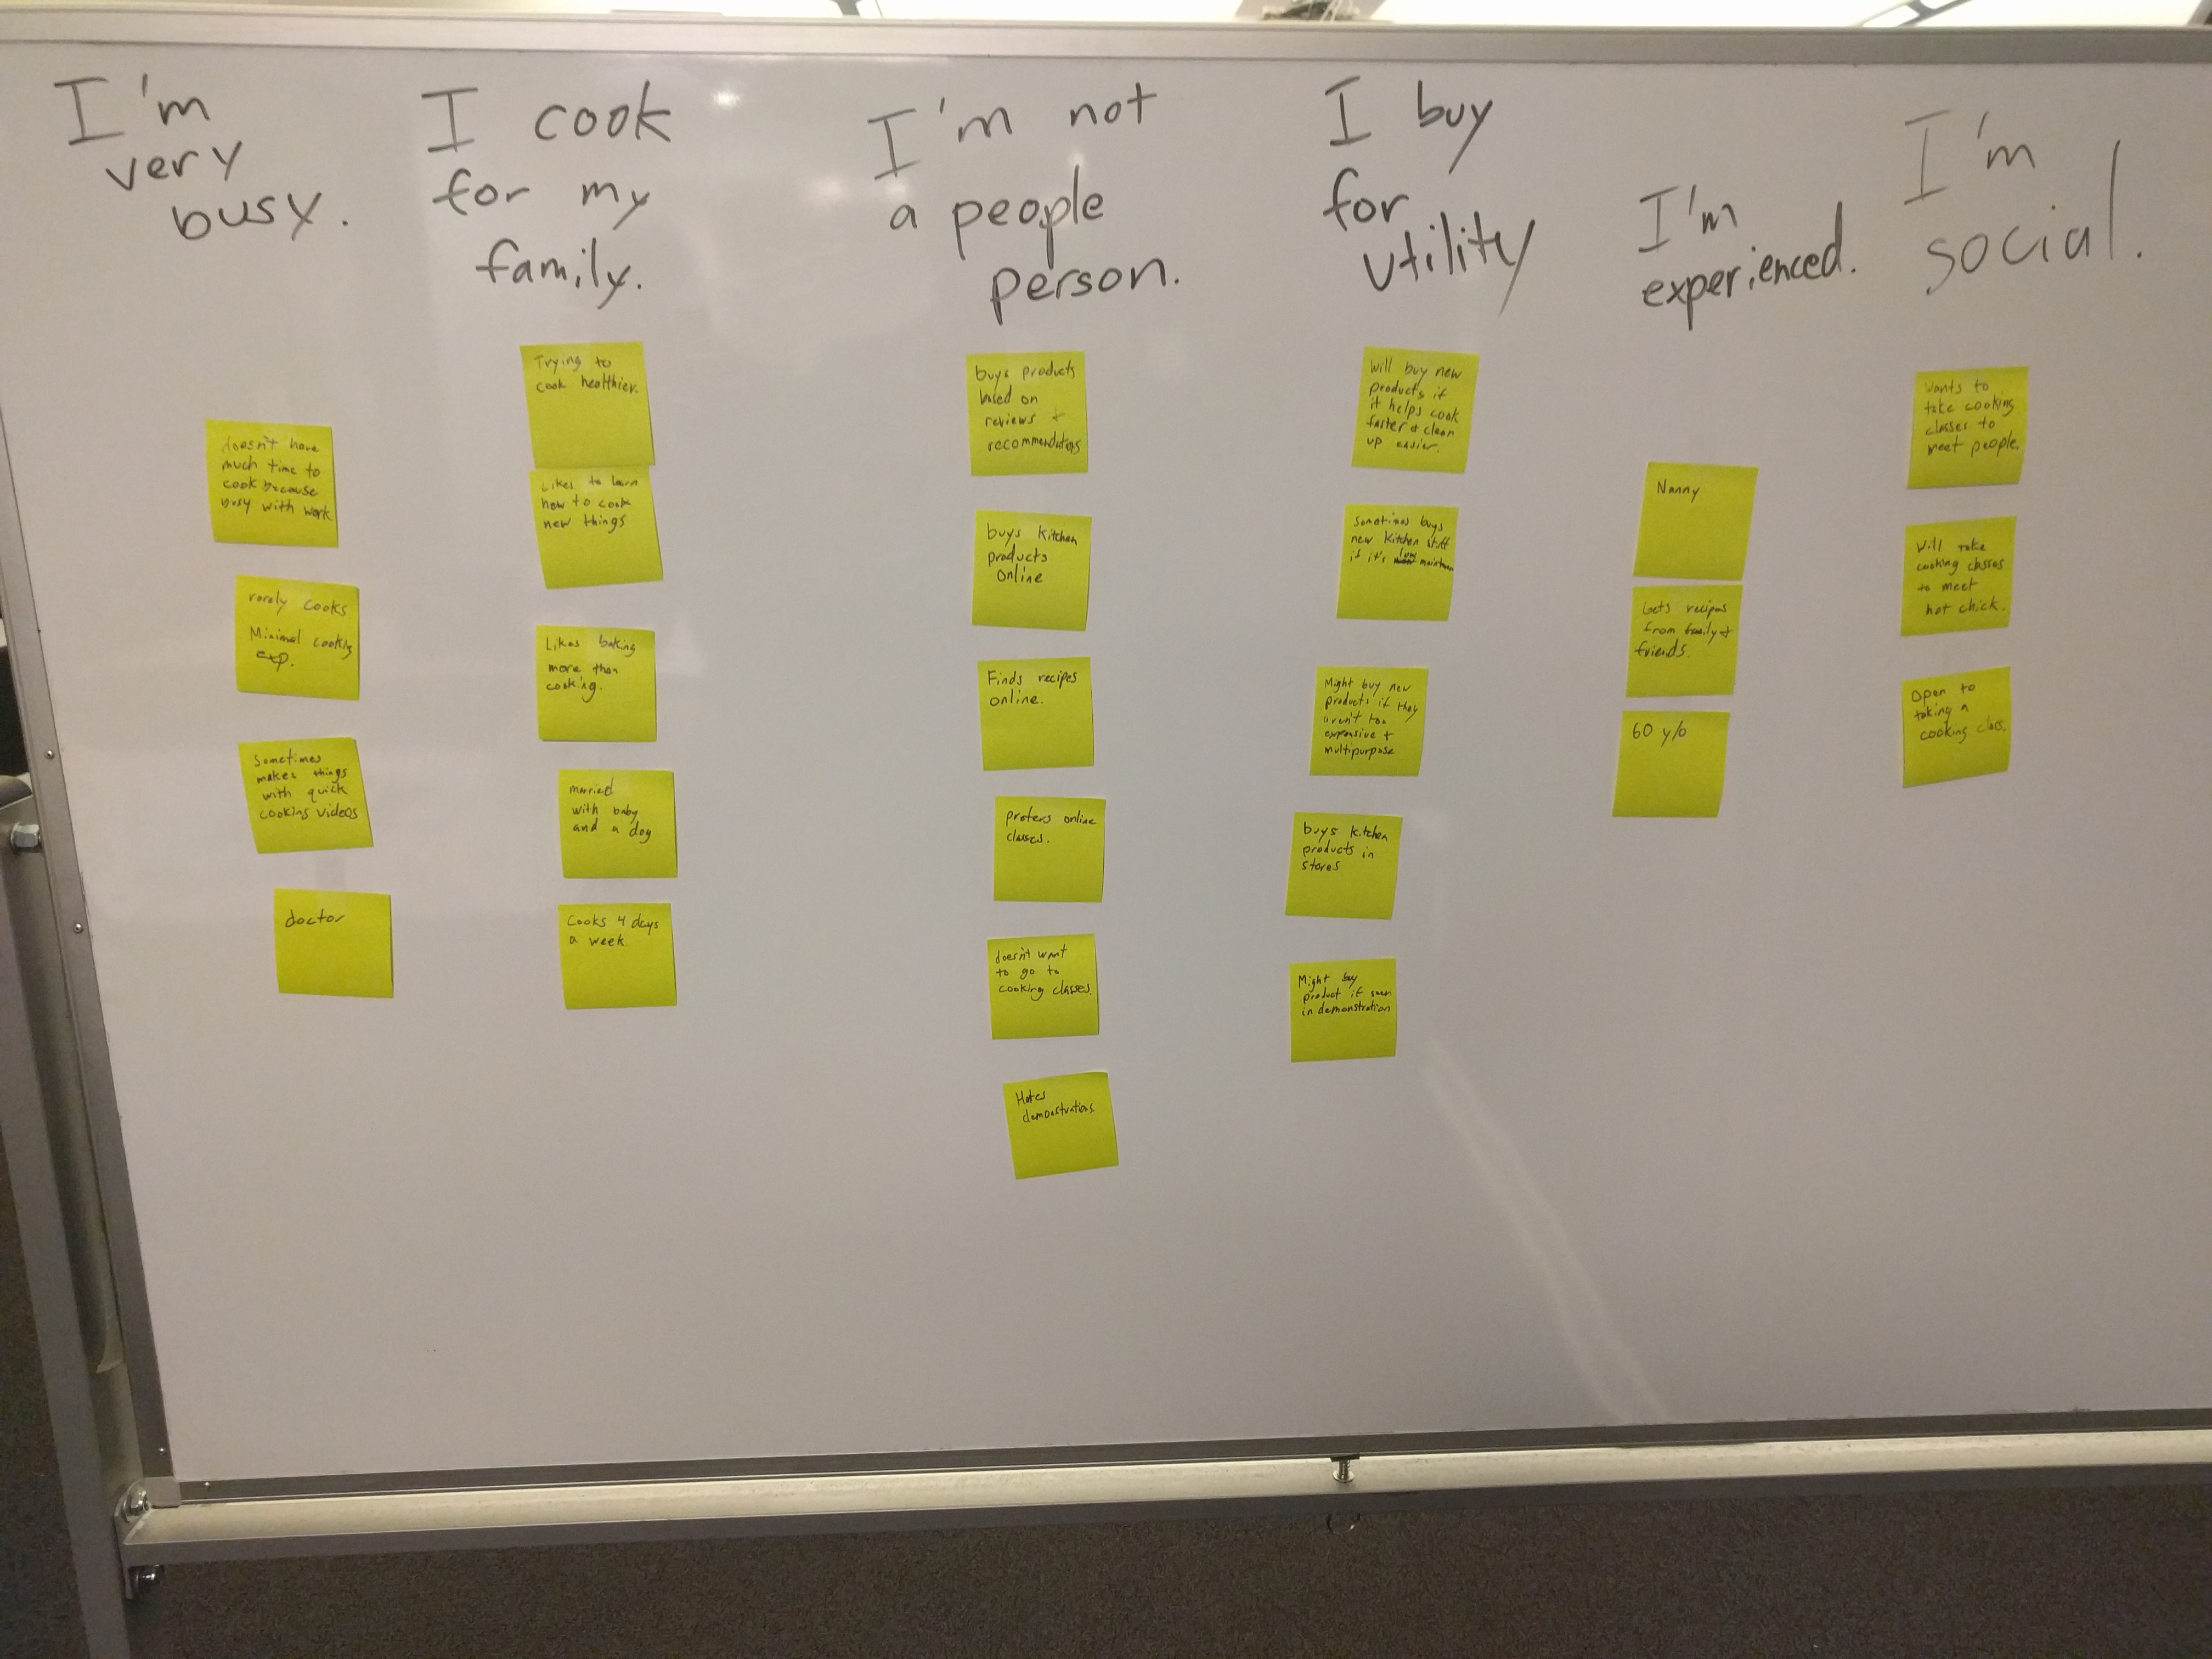 I'm
very
busy.
doesn't have
much time to
cook because
busy with work
rarely cooks.
Minimal cooking
exp.
Sometimes
makes things
with quick
cooking videos
doctor
I cook
for my
family.
Trying to
cook healthier.
Likes to learn
how to cook
new things
Likes baking
more than
cooking.
married
with baby
and a dog
Cooks 4 days
a week.
I'm not
a people
person.
buys products
based on
reviews +
recommendations
buys kitchen
products
online
Finds recipes
online.
prefers online
classes.
doesn't want
to go to
cooking classes.
Hates
demonstrations
I buy
for
utility
will buy new
products if
it helps cook
faster & clean
up easier.
sometimes buys
new kitchen stuff
if it's low
Might buy new
products if they
aren't too
expensive +
multipurpose
buys kitchen
products in
stores
Might buy
product if seen
in demonstration
I'm
experienced.
Nanny
Gets recipes
from family +
friends.
60 y/o
I'm
social.
Wants to
take cooking
classes to
meet people.
Will take
cooking classes
to meet
hot chick.
Open to
taking a
cooking class.